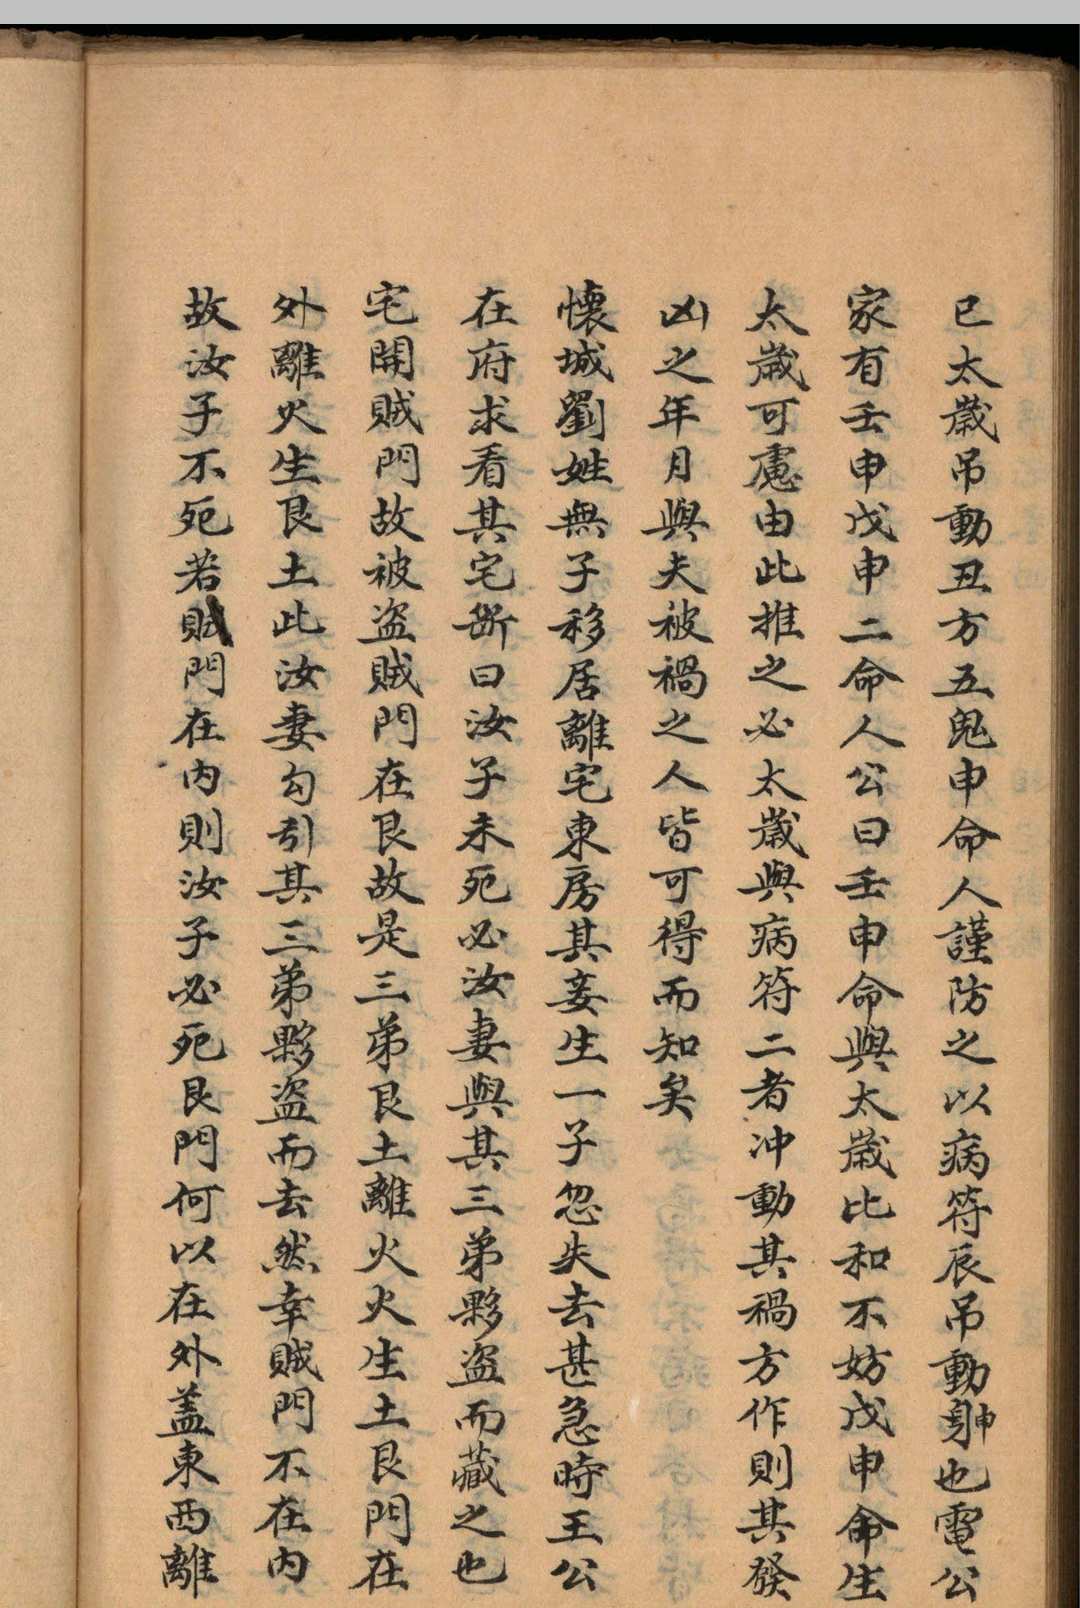 已太歲吊動丑方五鬼申命人謹防之以病符辰吊動申也電公
家有壬申戊申二命人公曰壬申命與太歲比和不妨戊申命生
太歲可慮由此推之必太歲與病符二者冲動其禍方作則其發
凶之年月與夫被禍之人皆可得而知矣
懷城劉姓無子移居離宅東房其妾生一子忽失去甚急時王公
在府求看其宅断曰汝子未死必汝妻與其三弟夥盜而藏之也
宅開賊門故被盜賊門在艮故是三弟艮土離火火生土艮門在
外離火生艮土此汝妻勾引其三弟夥盜而去然幸賊門不在內
故汝子不死若賊門在內則汝子必死艮門何以在外盖東西離